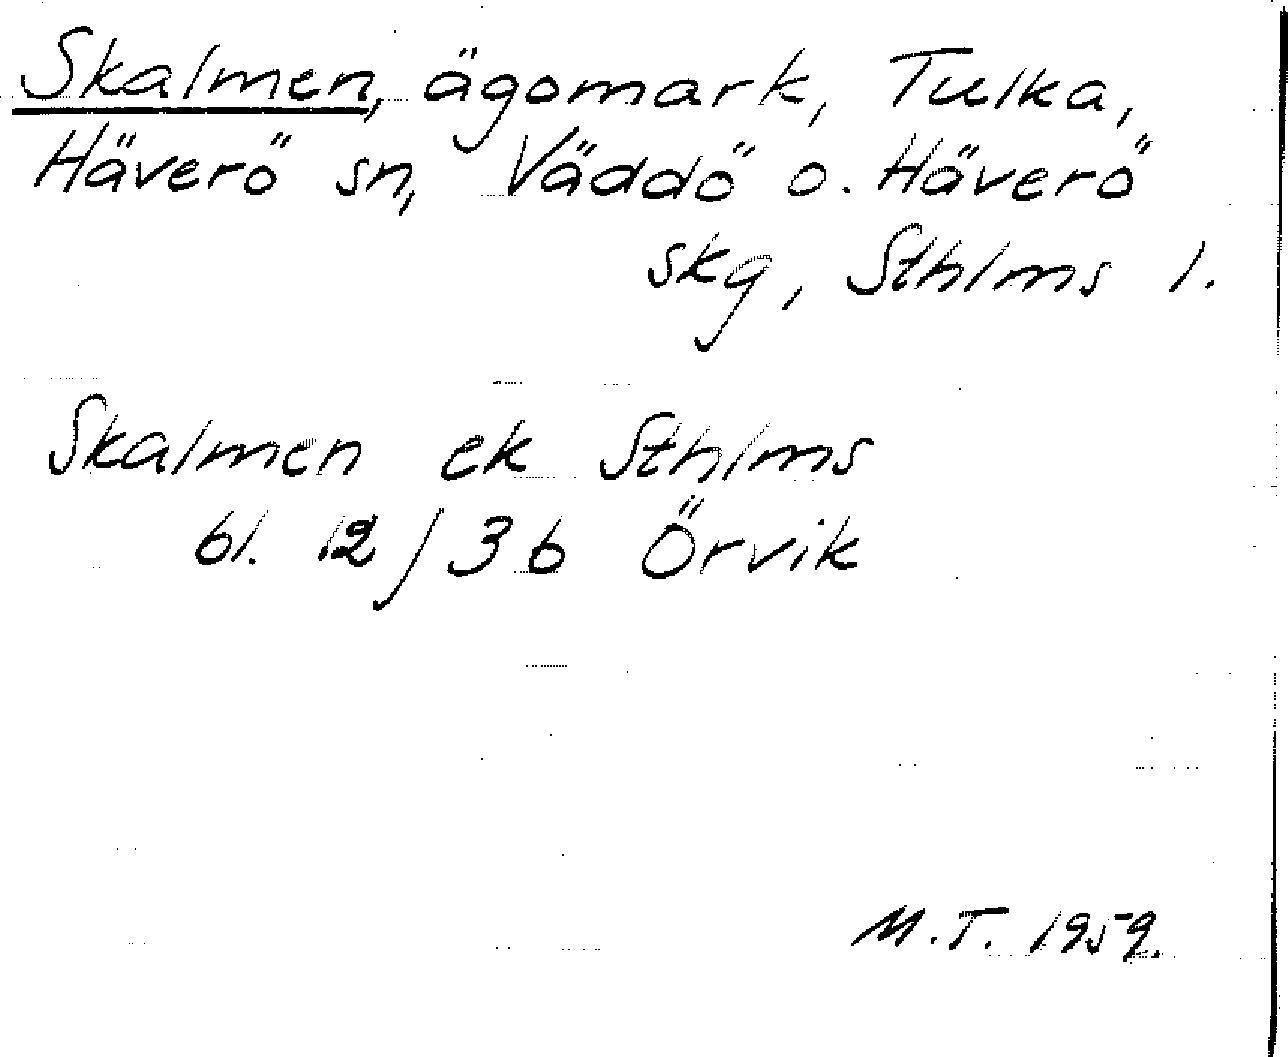 Skalmen, ägomark, Tulka,
Häverö sn, Väddö o. Häverö
skg, Sthlms l.
Skalmen ek Sthlms
bl. 12/3b Örvik
M.T. 1959.